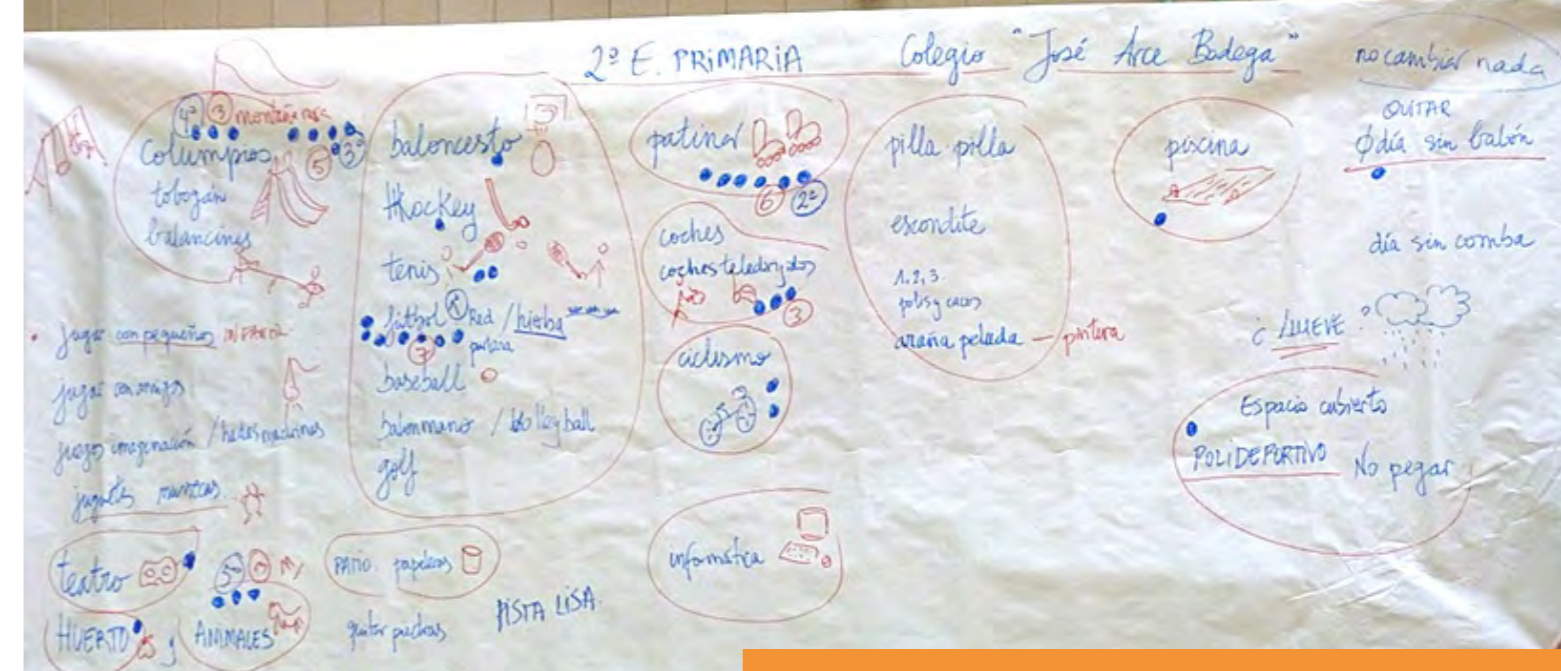 2º E. PRIMARIA Colegio "José Arce Bodega"
no cambiar nada
4º 3 montaña rusa
columpios 5 3º
tobogán
balancines
jugar con pequeños INFANTIL
jugar con amigos
juegos imaginación / hadas madrinas
juguetes
teatro
HUERTO y ANIMALES
5º
baloncesto
Hockey
tenis
fútbol Red / hierba
baseball
balonmano / volleyball
golf
PATIO papeleras
quitar piedras
PISTA LISA
patinar
6 2º
coches
coches teledirigidos
3
ciclismo
informática
pilla-pilla
escondite
1, 2, 3
polis y cacos
araña pelada — pintura
piscina
QUITAR
día sin balón
día sin comba
¿LLUEVE?
Espacio cubierto
POLIDEPORTIVO
No pegar